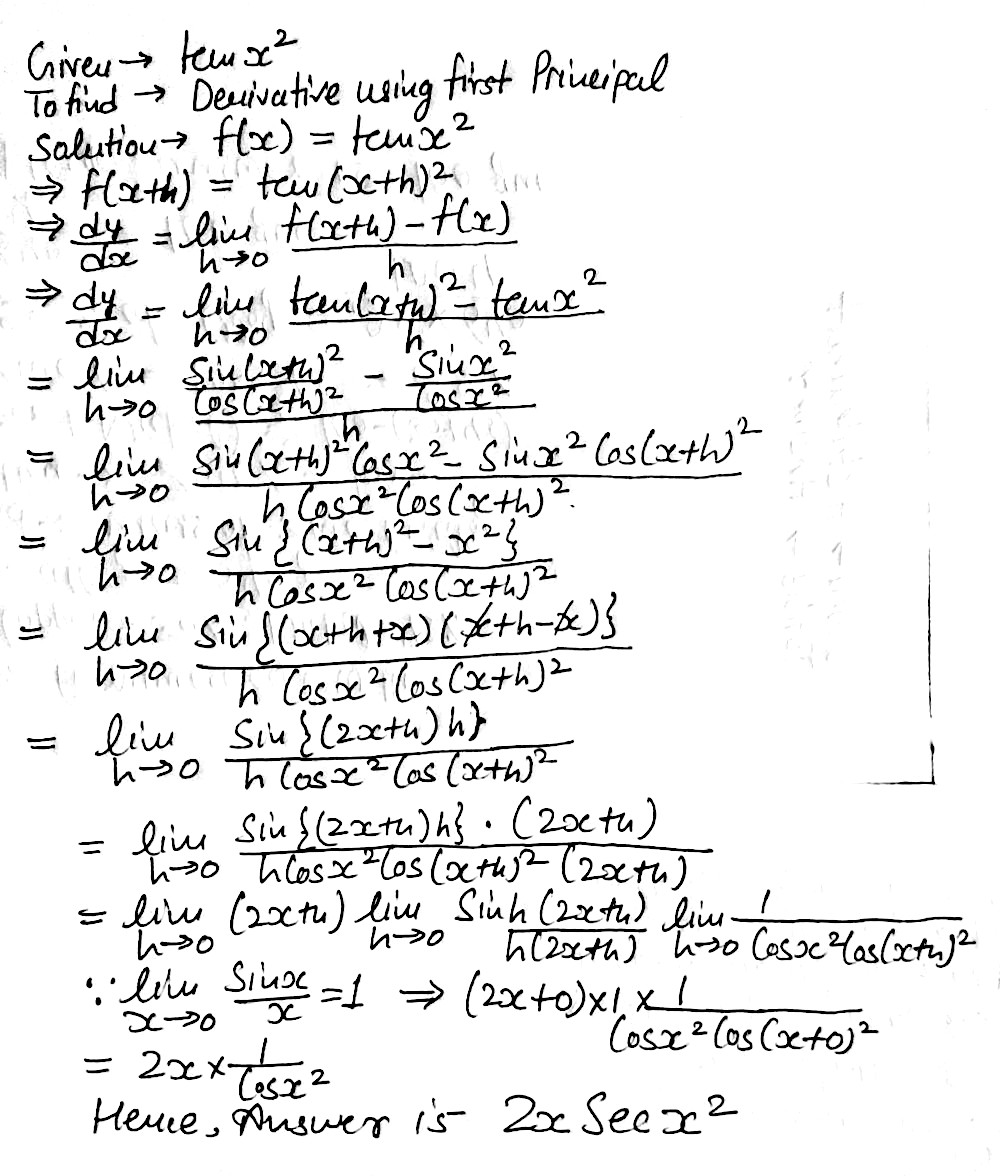 Given → tan x²
To find → Derivative using first Principal
Solution → f(x) = tan x²
⇒ f(x+h) = tan (x+h)²
⇒ dy/dx = lim h→0 (f(x+h) – f(x))/h
⇒ dy/dx = lim h→0 (tan(x+h)² – tan x²)/h
= lim h→0 (Sin(x+h)²/Cos(x+h)² – Sin x²/Cos x²)/h
= lim h→0 (Sin(x+h)² Cos x² – Sin x² Cos(x+h)²)/(h Cos x² Cos(x+h)²)
= lim h→0 Sin{(x+h)² – x²}/(h Cos x² Cos(x+h)²)
= lim h→0 Sin{(x+h+x)(x+h–x)}/(h Cos x² Cos(x+h)²)
= lim h→0 Sin{(2x+h)h}/(h Cos x² Cos(x+h)²)
= lim h→0 Sin{(2x+h)h}·(2x+h)/(h Cos x² Cos(x+h)² (2x+h))
= lim h→0 (2x+h) lim h→0 Sin h(2x+h)/(h(2x+h)) lim h→0 1/(Cos x² Cos(x+h)²)
∵ lim x→0 Sin x/x = 1 ⇒ (2x+0)×1×1/(Cos x² Cos(x+0)²)
= 2x × 1/Cos x²
Hence, Answer is 2x Sec x²